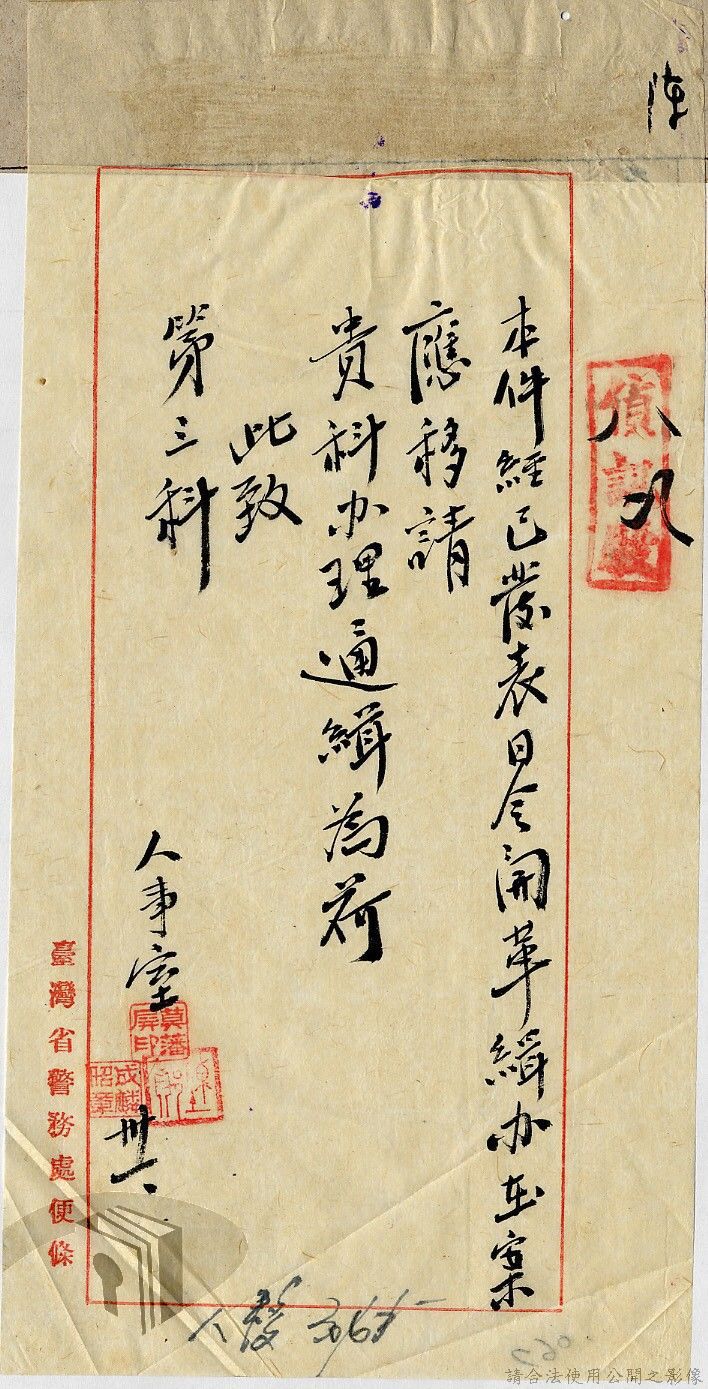 陳
偵訊股
本件經已發表日令開革緝办在案
應移請
貴科办理通緝為荷
此致
第三科
人事室
莫藩屏印
成麟昭章
卅一、
臺灣省警務處便條
人發
請合法使用公開之影像